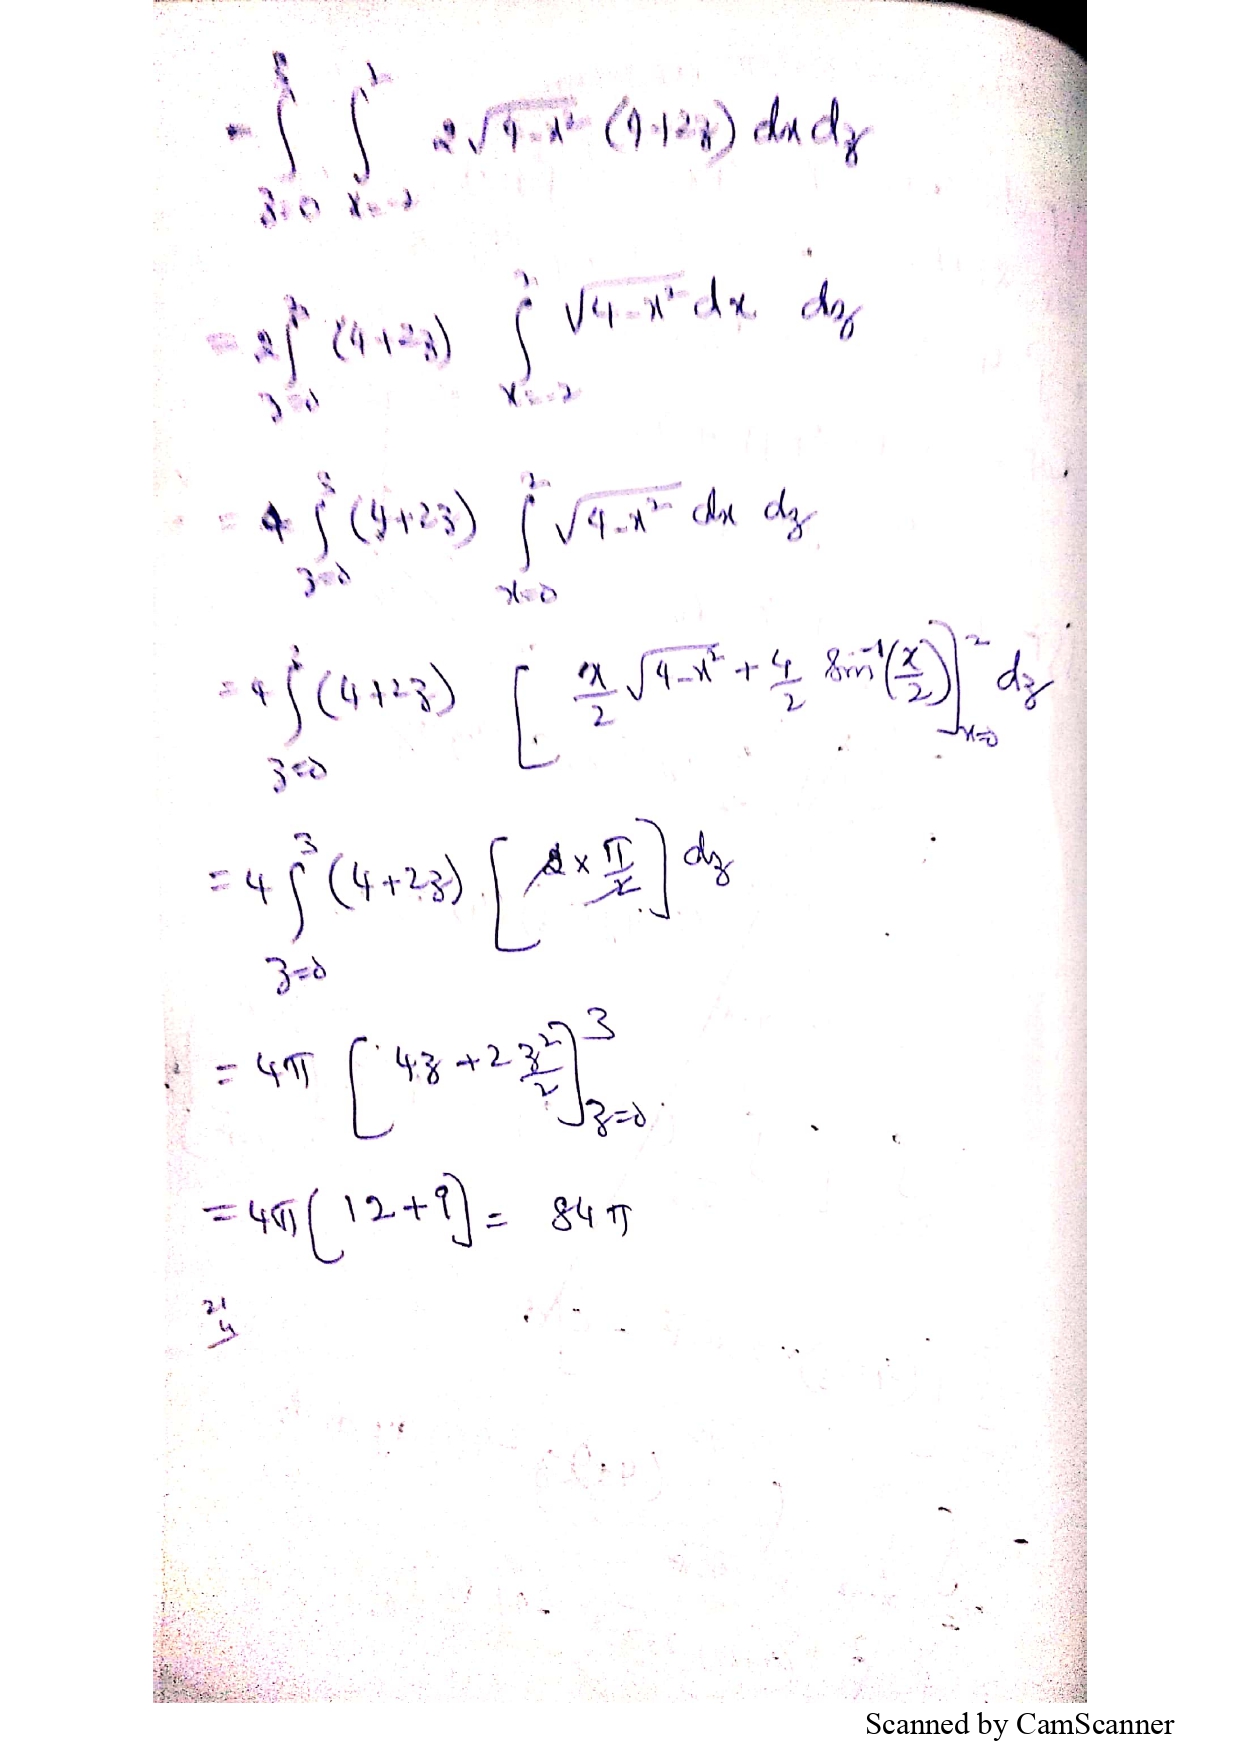 = ∫_{z=0}^{3} ∫_{x=-2}^{2} 2√(4-x²) (4+2z) dx dz
= 2∫_{z=0}^{3} (4+2z) ∫_{x=-2}^{2} √(4-x²) dx dz
= 4 ∫_{z=0}^{3} (4+2z) ∫_{x=0}^{2} √(4-x²) dx dz
= 4 ∫_{z=0}^{3} (4+2z) [x/2 √(4-x²) + 4/2 sin⁻¹(x/2)]_{x=0}^{2} dz
= 4 ∫_{z=0}^{3} (4+2z) [2 × π/2] dz
= 4π [4z + 2 z²/2]_{z=0}^{3}
= 4π [12+9] = 84π
21
4
Scanned by CamScanner